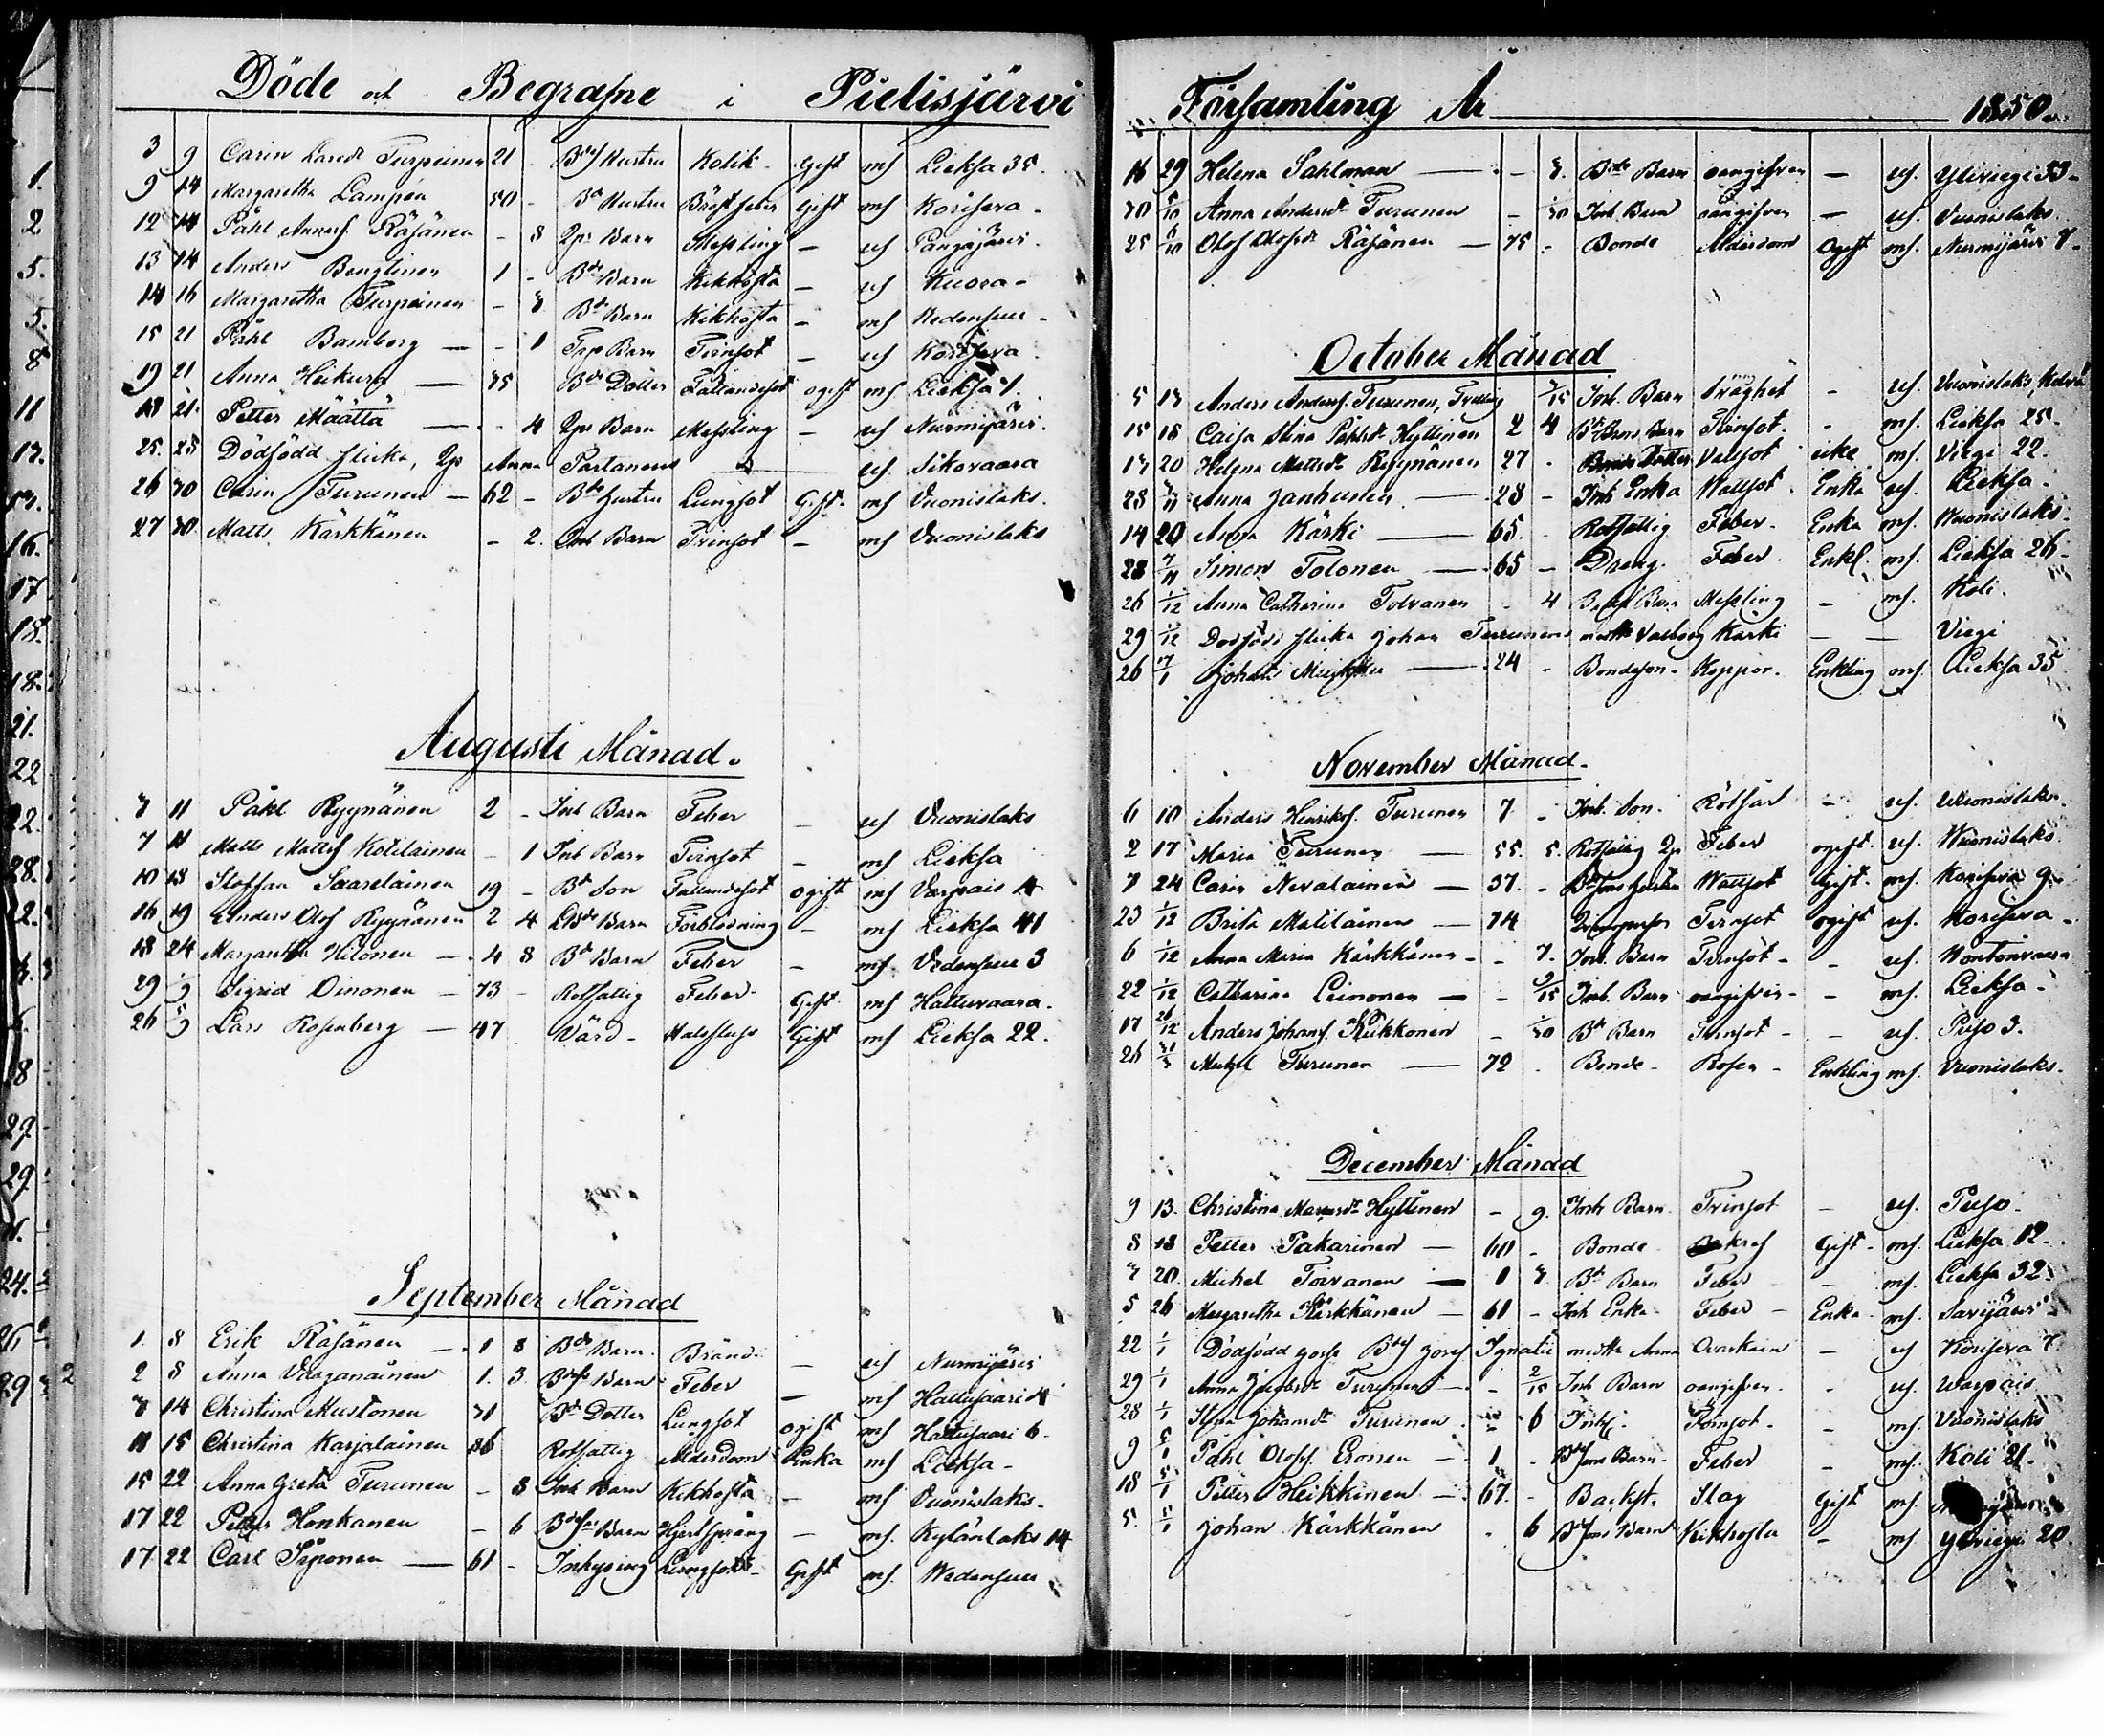 Döde och Begrafne i Pielisjärvi
3 9 Carin Turpeinen 21 - Hustru Kolik gift mf Lieksa 35.
9 14 Margaretha Lampén 50 - Bd Hustru Bröstfeber Gift mf Korisera -
12 14 Påhl Räsänen - 8 Qps Barn Messling - uf Pangajärvi.
13 14 Anders Bengtinen 1 - Bde Barn Kikhosta - uf Kuora -
14 16 Margaretha Turpeinen - Bd Barn Kikhosta - mf
15 21 Påhl Bamberg — - 1 Barn Trinsot - uf
19 21 Anna Heikura — 35 Bde Dotter Fallandesot ogift mf Lieksa
18 21 Petter Määttä — - 4 Qps Barn Messling - uf Nurmijärvi.
25. 25 Dödfödd flicka, Qps Anna Partanens uf. Sikovaara
26 30 Carin Turunen — 62 - Bde Hustru Lungsot Gift. mf Vuonislaks.
27 30 Matts Kärkkänen - 2. Inh Barn Trinsot - mf Vuonislaks
Augusti Månad.
11 Påhl Ryynänen 2 - Inh Barn Feber - uf Vuonislaks
7 11 Matts Mattsf Kotilainen - 1 Inh Barn Trinsot - mf Lieksa
10 18 Staffan Saarelainen 19 - Bd Son Fallandesot ogift mf Varpais 4
16 19 Anders Olof Ryynänen 2 4 Barn Förblödning - mf Lieksa 41
18 24 Margaretha Hilonen — 4 8 Bd Barn Feber - mf. 3
29 1/9 Sigrid Oinonen — 73 - Rotfattig Feber Gift mf Hattuvaara.
26 5/9 Lars Rosenberg — 47 Värd - Gift mf Lieksa 22.
September Månad
1. 8 Erik Räsänen — 1 8 Bde Barn. Bränd. - uf Nurmijärvi
2 8 Anna 1. 3 Barn Feber - mf Hattusaari 4
14 Christina Mustonen 31 Bd Dotter Lungsot ogift mf Hattusaari 6.
11 15 Christina Karjalainen 86 Rotfattig Ålderdom Enka mf Lieksa -
15 22 Anna Greta Turunen - 8 Inh Barn Kikhosta - mf Vuonislaks.
17 22 Petter Honkanen - 6 Barn Hjertsprång - mf. Kylänlaks 14
17 22 Carl Siponen — 61 - Inhysing Lungsot - Gift mf.
Församling År 1850.
16 29 Helena Sahlman — - Bde Barn oangifven — uf. Yliviegi 33 -
30 5/10 Anna Andersdr Turunen - 1/30 Inh. Barn oangifven — uf. Vuonislaks.
25 6/10 Olof Olofsf Räsänen — 75 - Bonde Ålderdom Ogift mf. Nurmijärvi 7 -
October Månad
5 13 Anders Andersf. Turunen, Trilling /15 Inh. Barn - uf. Vuonislaks,
15 18 Caisa Stina Påhlsdr Hyttinen 2 4 Barn Trinsot. - mf. Lieksa 25.
13 20 Helena Mattsdr Ryynänen 27 - Bonde Dotter Vatsot mf. Viegi 22.
28 Anna Janhunen — 28 - Inh Enka Wattsot. Enka uf. Lieksa.
14 20 Anna Kärki — 65. - Rotfattig Feber. Enka mf. Wuonislaks.
28 7/11 Simon Tolonen — 65 - Dreng. Feber. Enkl. mf. Lieksa 26 -
26 1/12 Anna Catharina Tolvanen - 4 Barn Messling - mf. Koli.
29 1/12 Dödfödd flicka Johan Turunens Valborg Kärki — — Viegi
26 Johan — 24 - Bondeson - Koppor. Enkling mf. Lieksa 35
November Månad.
6 10 Anders Henriksf. Turunen 7 - Inh. Son. Rötsår - uf. Wuonislaks.
2 17 Maria Turunen — 55. 5. Rotfattig Qp Feber ogift. uf. Wuonislaks.
24 Carin Nevalainen — 37. - Wattsot Gift. mf. Korisera 9 -
23 1/12 Brita Matilainen — 74 Trinsot ogift uf. Korisera -
6 1/12 Anna Maria Kärkkänen - - 7. Inh. Barn Trinsot - - uf.
22 1/12 Catharina Leinonen — - /15 Inh. Barn oangifven - - mf. Lieksa -
17 26/12 Anders Johansf. Kukkonen - /30 Bd Barn Trinsot - - uf. Puso 3.
26 Mickel Turunen — 72 - Bonde - Rosen - Enkling mf. Vuonislaks.
December Månad
9 13. Christina Hyttinen - 9. Inh Barn Trinsot - uf. Puso -
8 18 Petter Pakarinen — 60 - Bonde Gift - mf. Lieksa 12.
20. Michel Toivanen — 1 Bd Barn Feber - mf. Lieksa 32
5 26 Margaretha Kärkkänen — 61 - Inh Enka Feber - Enka - mf. Savijärvi
22 1/1 Dödfödd gosse Josef Ignatii med Anna Ovaskain - uf Korisera 7
29 1/1 Anna Turunen - - 2/15 Inh Barn oangifven. - uf. Warpais
28 1/1 Stina Johansdr Turunen - 6 Inh. Trinsot - - mf. Vuonislaks
9 5/1 Påhl Olofsf. Eronen — 1 - Barn. Feber - mf. Koli 21.
18 5/1 Petter Heikkinen — 67. - Backst. Slag Gift mf.
5. 5/1 Johan Kärkkänen - 6 Barn Kikhosta - mf Yliviegi 20.